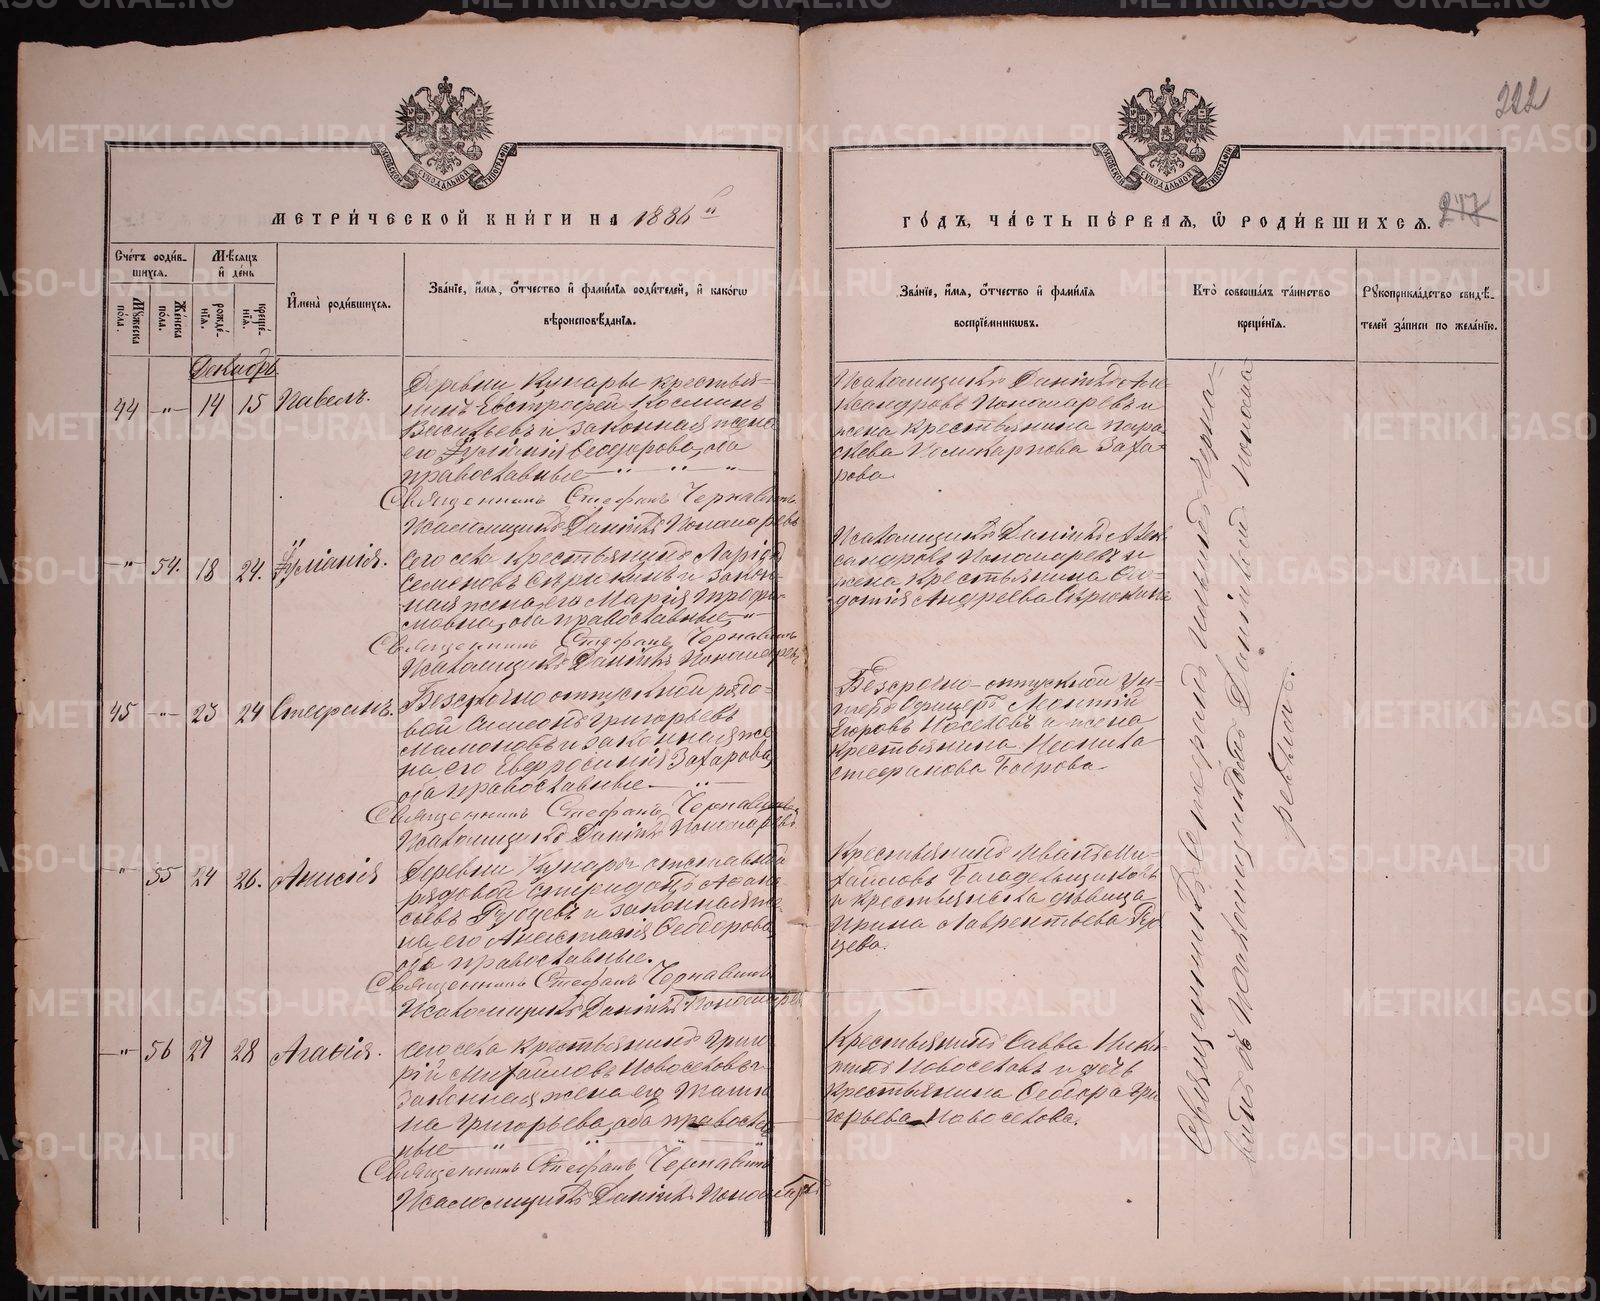 222
МЕТРИ́ЧЕСКОЙ КНИ́ГИ НА 1886й
ГО́ДЪ, ЧА́СТЬ ПЕ́РВАЯ, Ѡ РОДИ́ВШИХСЯ.
247
Сче́тъ роди́в-
шихся.
Мѣсяцъ
и҆ де́нь
Мꙋжеска
по́ла.
Же́нска
по́ла.
рожде́-
нїя.
креще́-
нїя.
И҆мена̀ роди́вшихся.
Зва́нїе, и҆́мя, ѻ҆́тчество и҆ фами́лїѧ роди́телей, и҆ како́гѡ
вѣроисповѣ́данїя.
Зва́нїе, и҆́мя, ѻ҆́тчество и҆ фами́лїя
воспрїе́мникѡвъ.
Кто̀ соверша́лъ та́инство
креще́нїя.
Рꙋкоприкла́дство свидѣ́-
телей за́писи по жела́нїю.
Декабрь
44 -„- 14 15 Павелъ.
Деревни Кунары крестья-
нинъ Евстрофей Косминъ
Васильевъ и законная жена
его Іуліанія Ѳеодорова, оба
православные
Священникъ Стефанъ Чернавинъ
Псаломщикъ Даніилъ Пономаревъ
Псаломщикъ Даніилъ Але-
ксандровъ Пономаревъ и
жена крестьянина Пара-
скева Поликарпова Заха-
рова.
-„- 54. 18 24. Іуліанія.
Сего села крестьянинъ Ларіонъ
Семеновъ Сѣрюкинъ и закон-
ная жена его Марія Трофи-
мовна, оба православные
Священникъ Стефанъ Чернавинъ
Псаломщикъ Даніилъ Пономаревъ
Псаломщикъ Даніилъ Алек-
сандровъ Пономаревъ и
жена крестьянина
Андреева Сѣрюкина
45 -„- 23 24 Стефанъ.
Безсрочно отпускной рядо-
вой Симеонъ Григорьевъ
Мамоновъ и законная же-
на его Евфросинія Захарова,
оба православные
Священникъ Стефанъ Чернавинъ
Псаломщикъ Даніилъ Пономаревъ
Безсрочно-отпускной ун-
теръ Офицеръ Леонтій
Егоровъ Носеловъ и жена
крестьянина Неонила
Стефанова
-„- 55 24 26. Анисія
Деревни Кунары отставной
рядовой Спиридонъ Аѳана-
сьевъ Рубцевъ и законная же-
на его Анастасія Ѳеодорова,
оба православные.
Священникъ Стефанъ Чернавинъ
Псаломщикъ Даніилъ Пономаревъ
Крестьянинъ Иванъ Ми-
хайловъ Богадельщиковъ
и крестьянска дѣвица
Ирина Лаврентьева Руб-
цева.
-„- 56 27 28 Агаѳія.
Сего села крестьянинъ Григо-
рій Михайловъ Новоселовъ и
законная жена его Татья-
на Григорьева, оба православ-
ные
Священникъ Стефанъ Чернавинъ
Псаломщикъ Даніилъ Пономаревъ
Крестьянинъ Савва Ники-
тинъ Новоселовъ и дочь
крестьянина Ѳедора Гри-
горьева Новоселова.
Священникъ Стефанъ Чернa-
винъ съ Псаломщикомъ Даніиломъ Понома-
ревымъ.